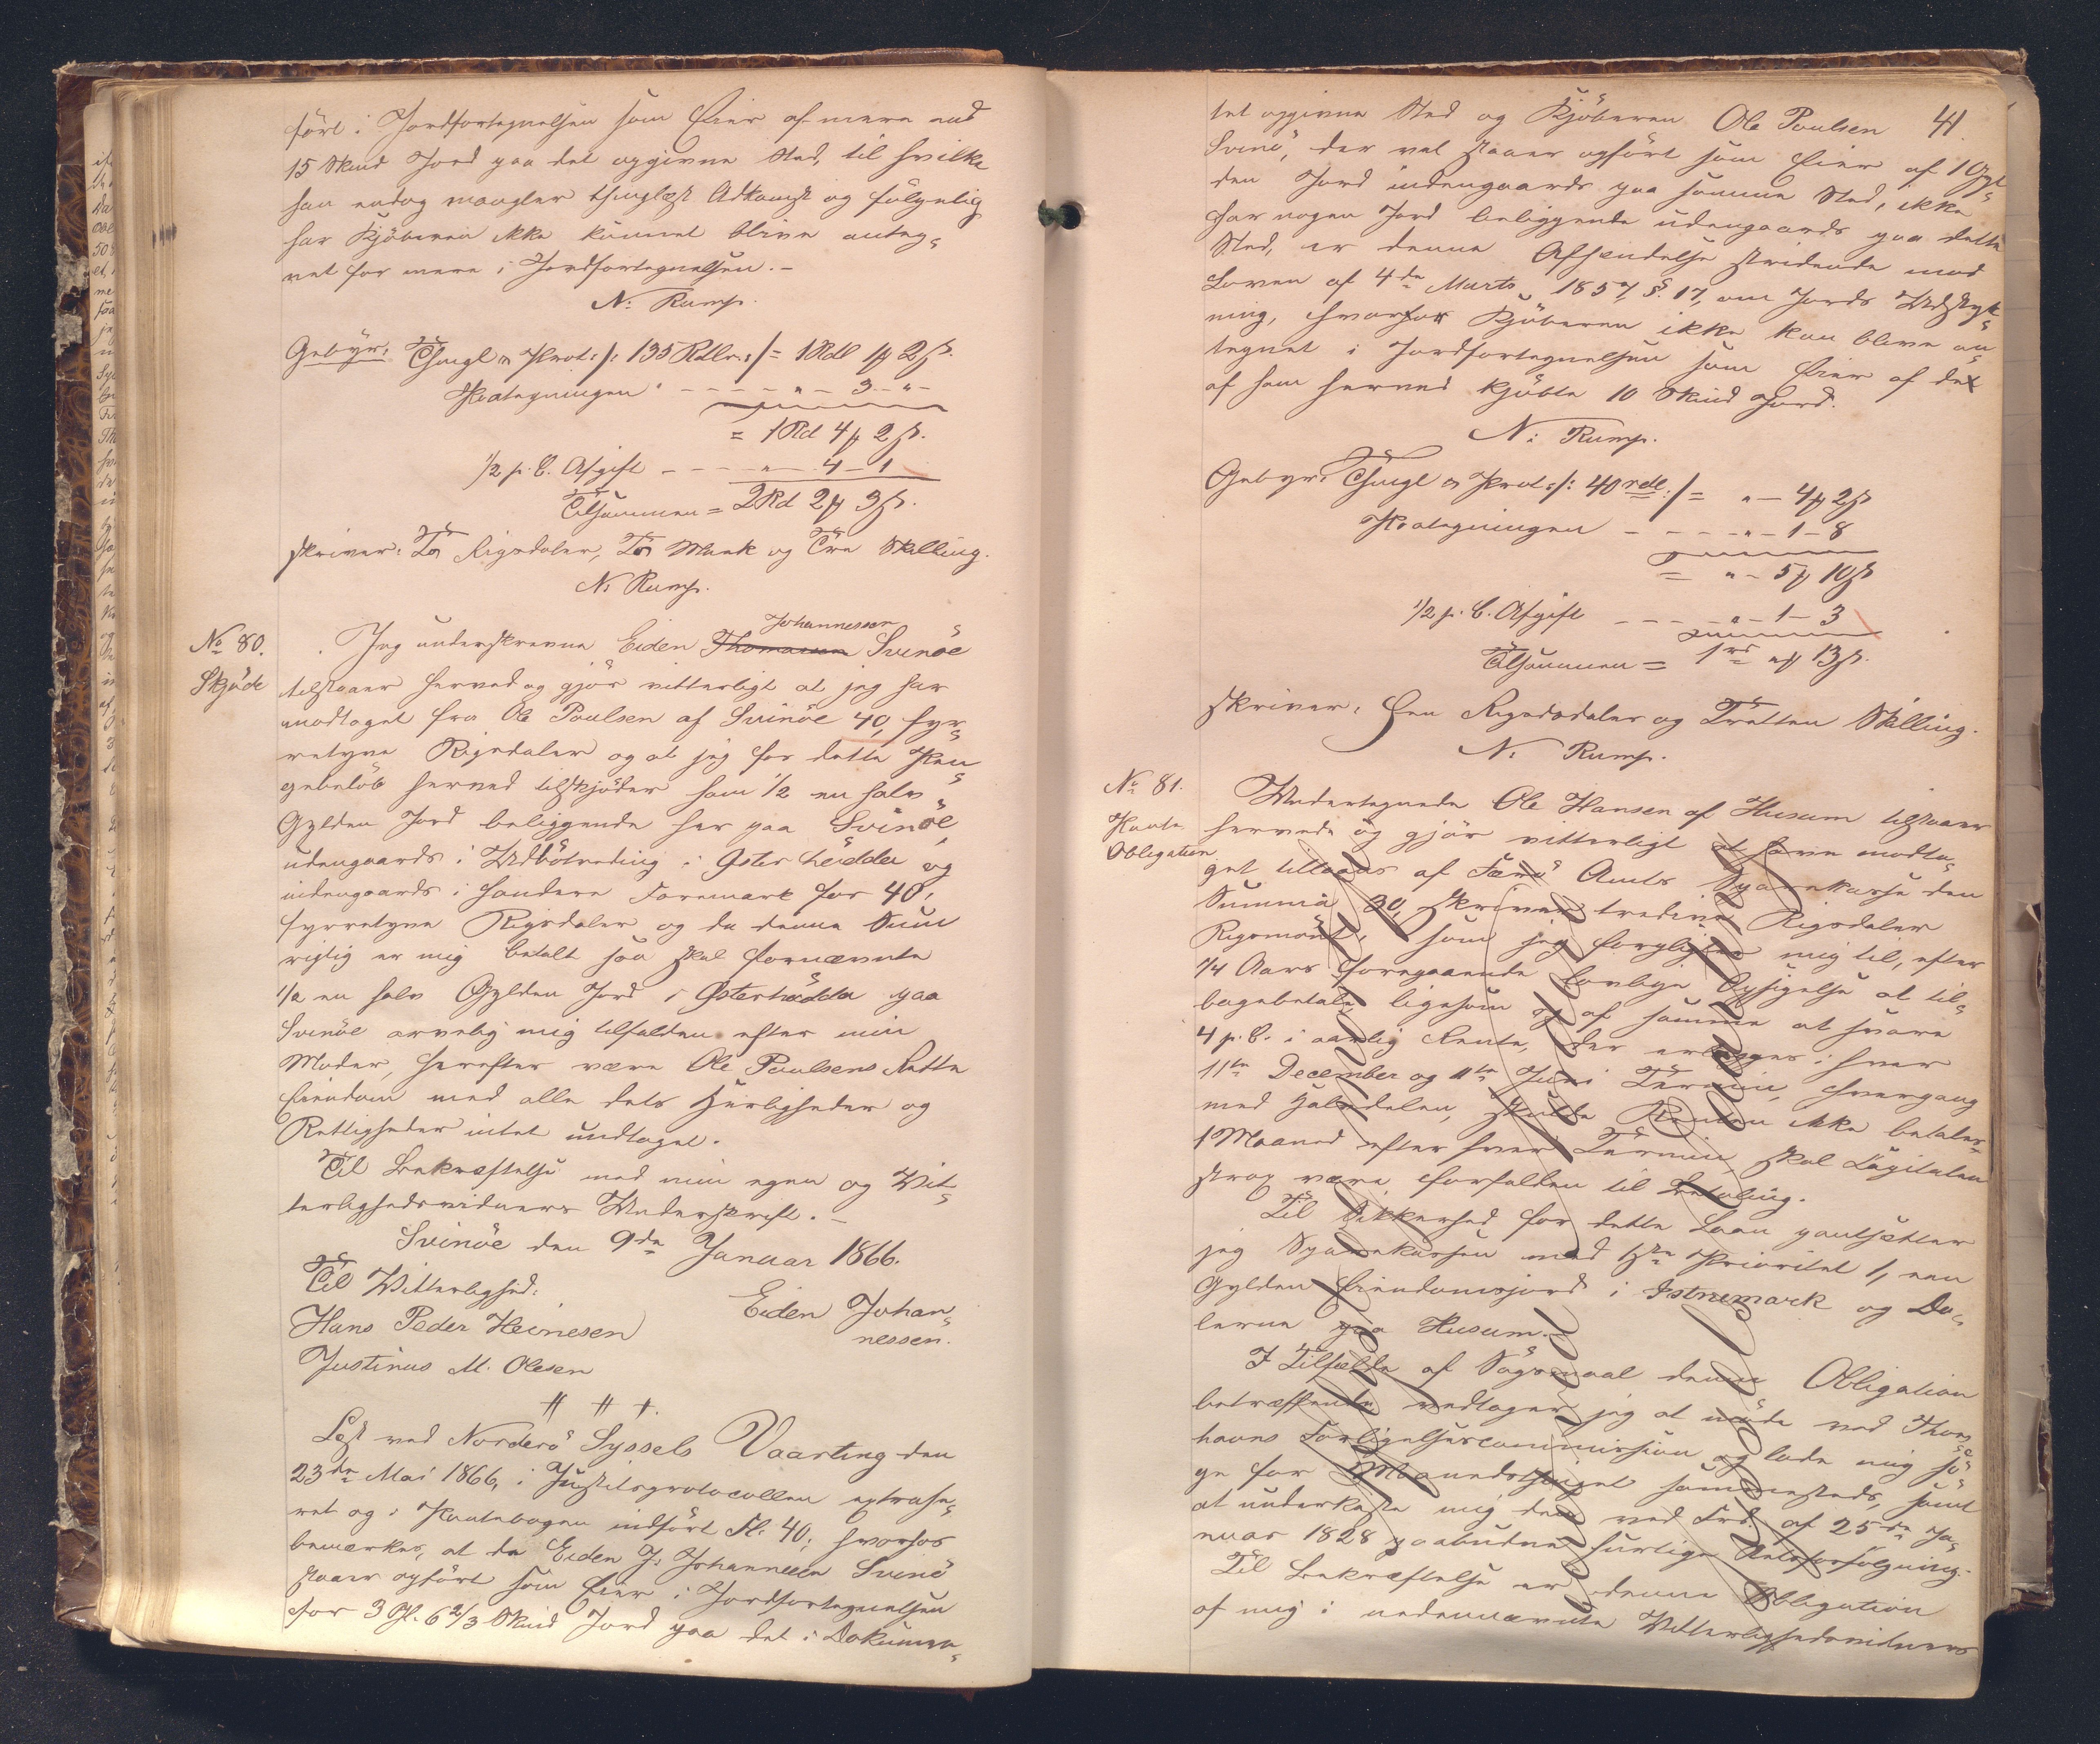 ført i Jordfortegnelsen som Eier af mere end
15 Skind Jord paa det opgivne Sted, til hvilke
han endog mangler thinglæst Adkomst og følgelig
har Kjöberen ikke kunnet blive anteg-
net for mere i Jordfortegnelsen. -
N: Rump.
Gebyr: Thingl & Prot: /: 135 Rdlr.:/ = 1 Rdl 1 ꝟ 2 ß.
Paategningen - - - - " - 3 - " -
= 1 Rd 4 ꝟ 2 ß.
1/2 p. C. Afgift - - - - " - 4 - 1
Tilsammen = 2 Rd 2 ꝟ 3 ß.
skriver: To Rigsdaler, To Mark og Tre Skilling.
N: Rump.
No 80.
Skjöde
Jeg underskrevne Eiden Thomasen Johannessen Svinöe
tilstaaer herved og gjör vitterligt at jeg har
modtaget fra Ole Poulsen af Svinöe 40, fyr-
retyve Rigsdaler og at jeg for dette Pen-
gebelöb herved tilskjöder ham 1/2 en halv
Gylden Jord beliggende her paa Svinöe
udengaards i Udbötreding i Öster hödda og
indengaards i Handere Toremark for 40,
fyrretyve Rigsdaler og da denne Sum
rigtig er mig betalt saa skal fornævnte
1/2 en halv Gylden Jord i Österhödda paa
Svinöe arvelig mig tilfalden efter min
Moder, herefter være Ole Poulsens Rette
Eiendom med alle dets Herligheder og
Rettigheder intet undtaget.
Til Bekræftelse med min egen og Vit-
terlighedsvidners Underskrift. -
Svinöe den 9de Januar 1866.
Til Vitterlighed:
Eiden Johan-
nessen.
Hans Peder Heinesen
Justinus M. Olesen
# # +.
Læst ved Norderö Syssels Vaarting den
23de Mai 1866, i Justitsprotocollen extrahe-
ret og i Pantebogen indført Fl: 40; hvorhos
bemærkes, at da Eiden J: Johannesen Svinö
staaer opført som Eier i Jordfortegnelsen
for 3 Gl. 6 2/3 Skind Jord paa det i Dokumen-
41.
tet opgivne Sted og Kjöberen Ole Poulsen
Svinö, der vel staaer opført som Eier af 1 Gyl-
den Jord indengaards paa samme Sted, ikke
har nogen Jord beliggende udengaards paa dette
Sted, er denne Afhændelse stridende mod
Loven af 4de Marts 1857, §. 17, om Jords Udstyk-
ning, hvorfor Kjöberen ikke kan blive an-
tegnet i Jordfortegnelsen som Eier af de
af ham herved kjöbte 10 Skind Jord.
N: Rump.
Gebyr: Thingl & Prot: /: 40 rdl :/ = " - 4 ꝟ 2 ß
Paategningen - - - - " - 1 - 8
= " - 5 ꝟ 10 ß
1/2 p. C. Afgift - - - - " - 1 - 3
Tilsammen = 1 rd " ꝟ 13 ß.
skriver: Een Rigsdaler og Tretten Skilling.
N: Rump.
No 81.
Pante
Obligation
Undertegnede Ole Hansen af Husum tilstaaer
herved og gjör vitterligt at have modta-
get tillaans af Færö Amts Sparekasse den
Summa 30, skriver tredive Rigsdaler
Rigsmönt, som jeg forpligter mig til, efter
1/4 Aars foregaaende lovlige Opsigelse at til-
bagebetale, ligesom og af samme at svare
4 p. C. i aarlig Rente, der erlægges i hver
11te December og 11te Juni Termin, hvergang
med Halvdelen, skulde Renten ikke betales
1 Maaned efter hver Termin, skal Capitalen
strax være forfalden til Betaling.
Til Sikkerhed for dette Laan pantsætter
jeg Sparekassen med 1ste Prioritet 1, een
Gylden Eiendomsjord i Istremark og Da-
lerne paa Husum.
I Tilfælde af Sögsmaal denne Obligation
betræffende vedtager jeg at möde ved Thors-
havns Forligelsescommission og lade mig sö-
ge for Maanedsthinget sammesteds, samt
at underkaste mig den ved Frd. af 25de Ja-
nuar 1828 paabudne hurtige Retsforfölgning.
Til Bekræftelse er denne Obligation
af mig i nedennævnte Vitterlighedsvidners